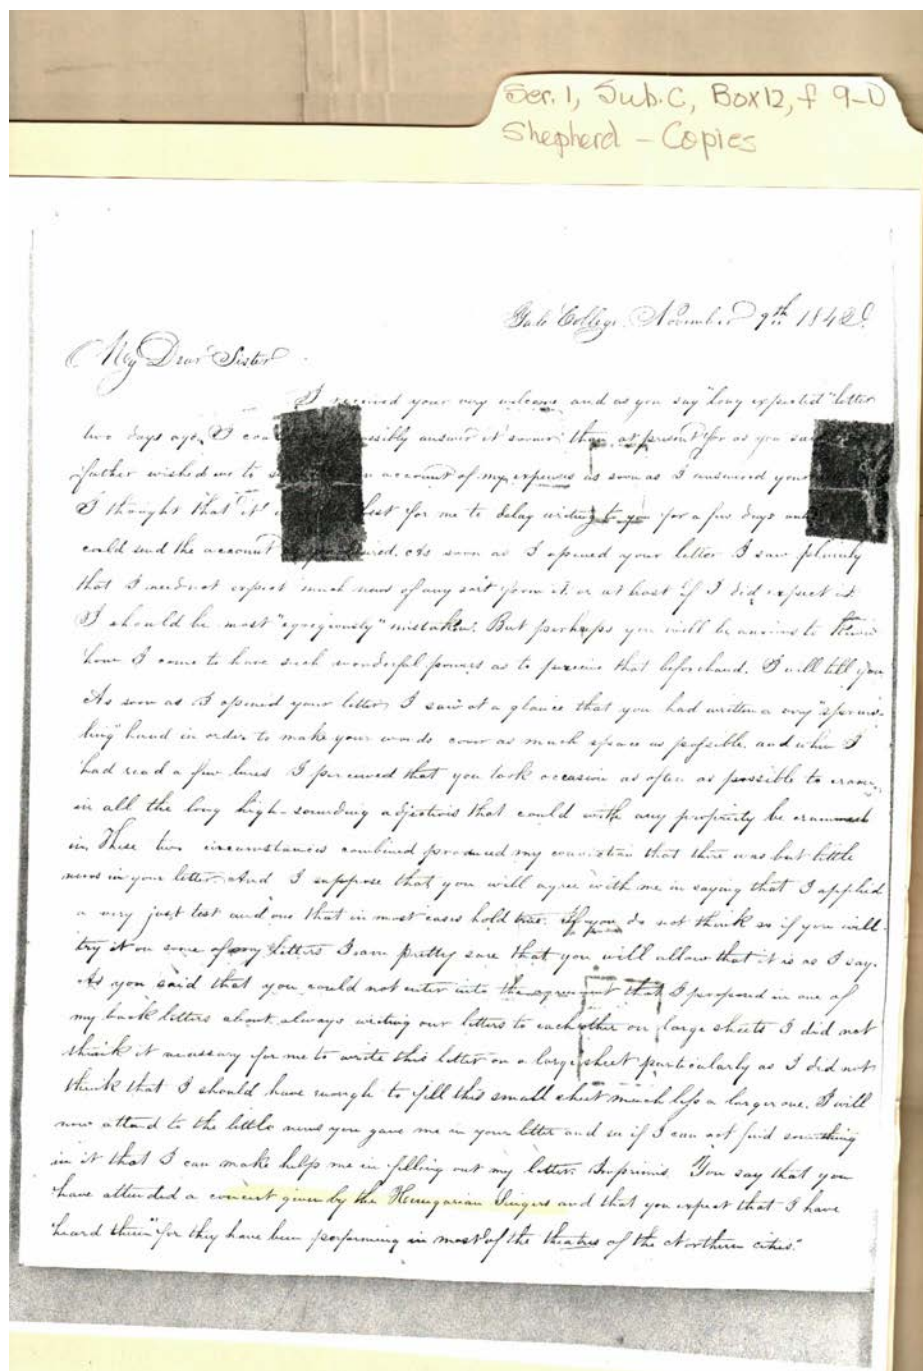 Ser. 1, Sub. C, Box 12, f 9-D
Shepherd - Copies
Yale College November 9th 1842
My Dear Sister
I received your very welcome and as you say "long expected" letter
two days ago. I possibly answer it sooner than at present for as you
father wished me to account of my expenses as soon as I answered your
I thought that it best for me to delay writing to you for a few days
could send the account As soon as I opened your letter I saw plainly
that I need not expect much news of any sort from it or at least if I did expect it
I should be most "egregiously" mistaken. But perhaps you will be anxious to know
how I come to have such wonderful powers as to perceive that beforehand. I will tell you
As soon as I opened your letter I saw at a glance that you had written a very "sprawl-
ling" hand in order to make your words cover as much space as possible. and when I
had read a few lines I perceived that you took occasion as often as possible to
in all the long high-sounding adjectives that could with any propriety be crammed
in. These two circumstances combined produced my conviction that there was but little
news in your letter. And I suppose that you will agree with me in saying that I applied
a very just test and one that in most cases hold true. If you do not think so if you will
try it on some of my letters I am pretty sure that you will allow that it is as I say.
As you said that you could not enter into the agreement that I proposed in one of
my back letters about always writing our letters to each other on large sheets I did not
think it necessary for me to write this letter on a large sheet particularly as I did not
think that I should have enough to fill this small sheet much less a larger one. I will
now attend to the little news you gave me in your letter and see if I can not find something
in it that I can make helps me in filling out my letter. Imprimis. You say that you
have attended a concert given by the Hungarian Singers and that you expect that I have
heard them "for they have been performing in most of the theatres of the Northern cities."